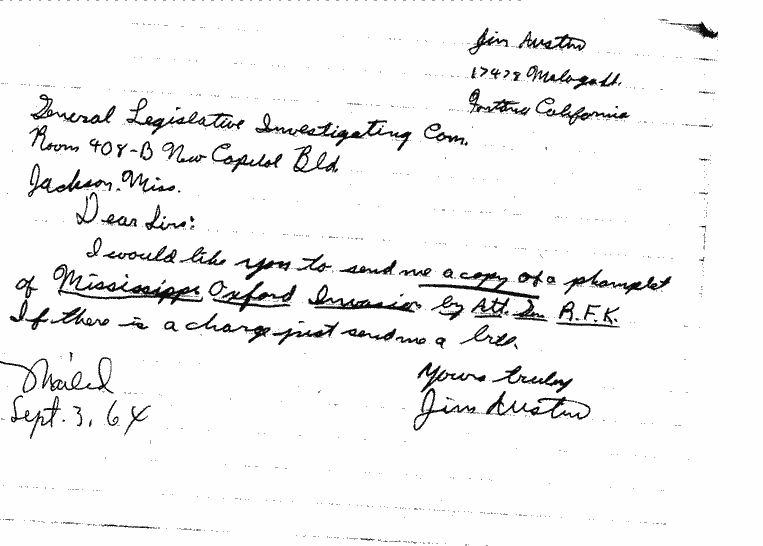 Jim Austin
17478 Malaga St.
Fontana California
General Legislative Investigating Com.
Room 408-B New Capitol Bld.
Jackson, Miss.
Dear Sirs:
I would like you to send me a copy of a phamplet
of Mississippi Oxford Invasion by Att. Gen R.F.K.
If there is a charge just send me a bill.
Yours truly
Jim Austin
Mailed
Sept. 3, 64